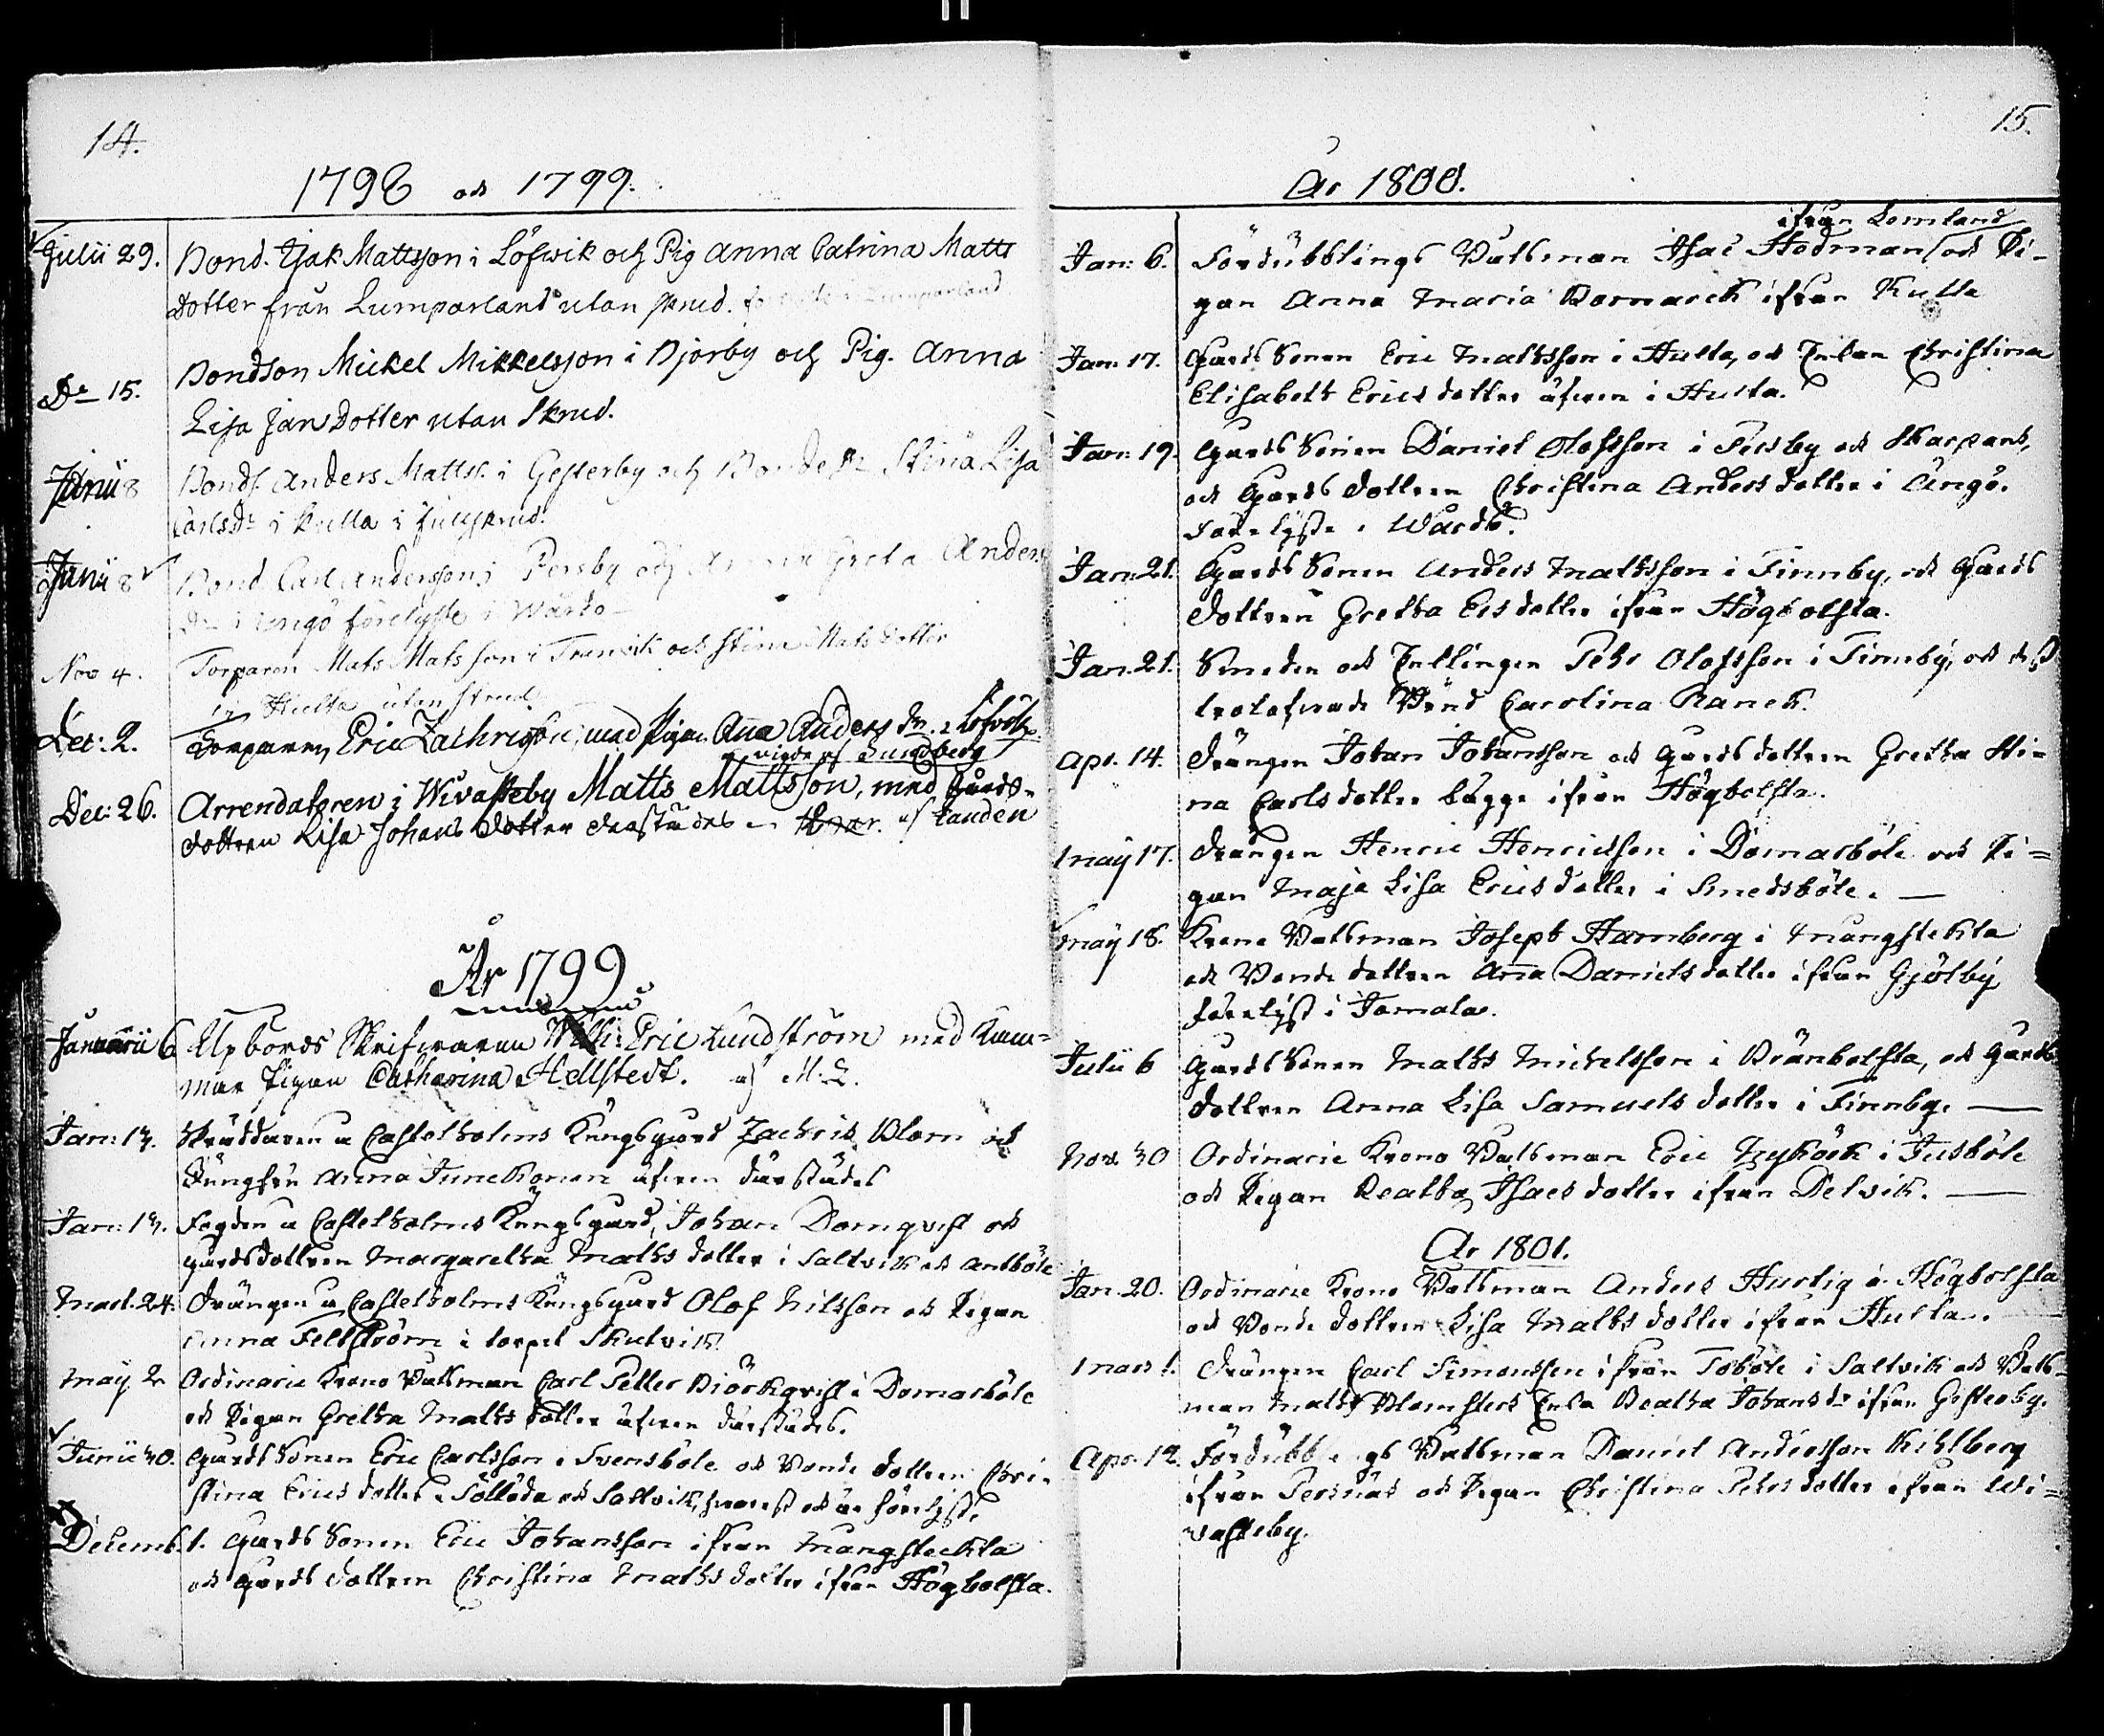 14.
1798 och 1799.
Julii 29. Bond. Isak Mattsson i Löfwik och Pig Anna Catrina Matts
dotter från Lumparland utan skrud. Lumparland
De 15. Bondson Mickel Mikkelsson i Björby och Pig. Anna
Lisa Jans Dotter utan Skrud.
Junii 8 Bonds. Anders Matts. i Gesterby och Bonde Dr Stina Lisa
Carlsdr i Kulla i full skrud.
Junii 8 Bond Carl Andersson i Persby och Anna Greta Anders
Dr i Ängö förelyste i Wårdö
Nov 4. Torparen Mats Matsson i Tranvik och Stina Mats dotter
i Hulta utan skrud
Dec: 2. Torparen Eric Zachrisson, med Pigan Ana Anders Dr. i Löfvik
vigde af Lundberg
Dec: 26. Arrendatoren i Wivasteby Matts Mattsson, med Gårds-
dottren Lisa Johans Dotter därstädes af Landen
År 1799
Januarii 6. Upbörds Skrifwaren Eric Lundström med Kam-
mar Pigan Catharina Hellstedt. af M. L.
Jan: 13. Skräddaren a Castelholms Kungsgård Zachris Blom och
Jungfru Anna Junekonen äfven därstädes
Jan: 13. Fogden a Castelholms Kungsgård, Johan Dömqvist och
gårdsdottren Margaretha Mathsdotter i Saltvik och Antböle
Mart. 24. Drängen a Castelholms Kungsgård Olof Nilsson och Pigan
Anna Fellström i torpet Skutvik
May 2 Ordinarie Krono Båtsman Carl Petter Björkqvist i Domarböle
och Pigan Gretha Mathsdotter äfven därstädes.
Junii 30. Gårds Sonen Eric Carlsson i Svensböle och Bonde dottren Chri-
stina Ersdotter i Sölläda och Saltvik, hvarest och är förelyst.
Decemb. 1. Gårds Sonen Eric Johansson ifrån Mångstekta
och Gårds dottren Christina Mathsdotter ifrån Högbolsta.
15.
År 1800.
ifrån Lemland
Jan: 6. Fördubblings Båtsman Isac Stedman och Pi-
gan Anna Maria Bornarck ifrån Kulla
Jan: 17. Gårds Sonen Eric Mathsson i Hulta, och Enkan Christina
Elisabeth Ericsdotter äfven i Hulta.
Jan: 19. Gårds Sonen Daniel Olofsson i Persby och Skarpans,
och Gårds dottren Christina Andersdotter i Ängö.
Förelyste i Wårdö.
Jan: 21. Gårds Sonen Anders Mathsson i Finnby, och Gårds
dottren Gretha Ersdotter ifrån Högbolsta.
Jan. 21. Smeden och Enklingen Pehr Olofsson i Finnby, och dess
trolofvade Brud Carolina Ranck.
Apr. 14. Drängen Johan Johansson och Gårds dottren Gretha Sti-
na Carlsdotter bägge ifrån Högbolsta.
May 17. Drängen Henric Henricsson i Domarböle och Pi-
gan Maja Lisa Ericsdotter i Smedsböle.
May 18. Krono Båtsman Joseph Hamberg i Mångstekta
och Bonde dottren Anna Danielsdotter ifrån Gjölby
förelyst i Jomala.
Julii 6 Gårds Sonen Maths Michelsson i Bränbolsta, och Gårds
dottren Anna Lisa Samuelsdotter i Finnby.
Nov. 30 Ordinarie Krono Båtsman Eric i Jusböle
och Pigan Beatha Isacsdotter ifrån Delvik.
År 1801.
Jan. 20. Ordinarie Krono Båtsman Anders Hurtig i Högbolsta
och Bonde dottren Lisa Mathsdotter ifrån Hulta.
Mars 1. Drängen Carl Simonsson ifrån Toböle i Saltvik och Båts-
man Maths Blomsters Enka Beatha Johansdr ifrån Gesterby.
Apr. 12. Fördubblings Båtsman Daniel Andersson Kihlberg
ifrån Persnäs och Pigan Christina Pehrsdotter ifrån Wi-
vasteby.